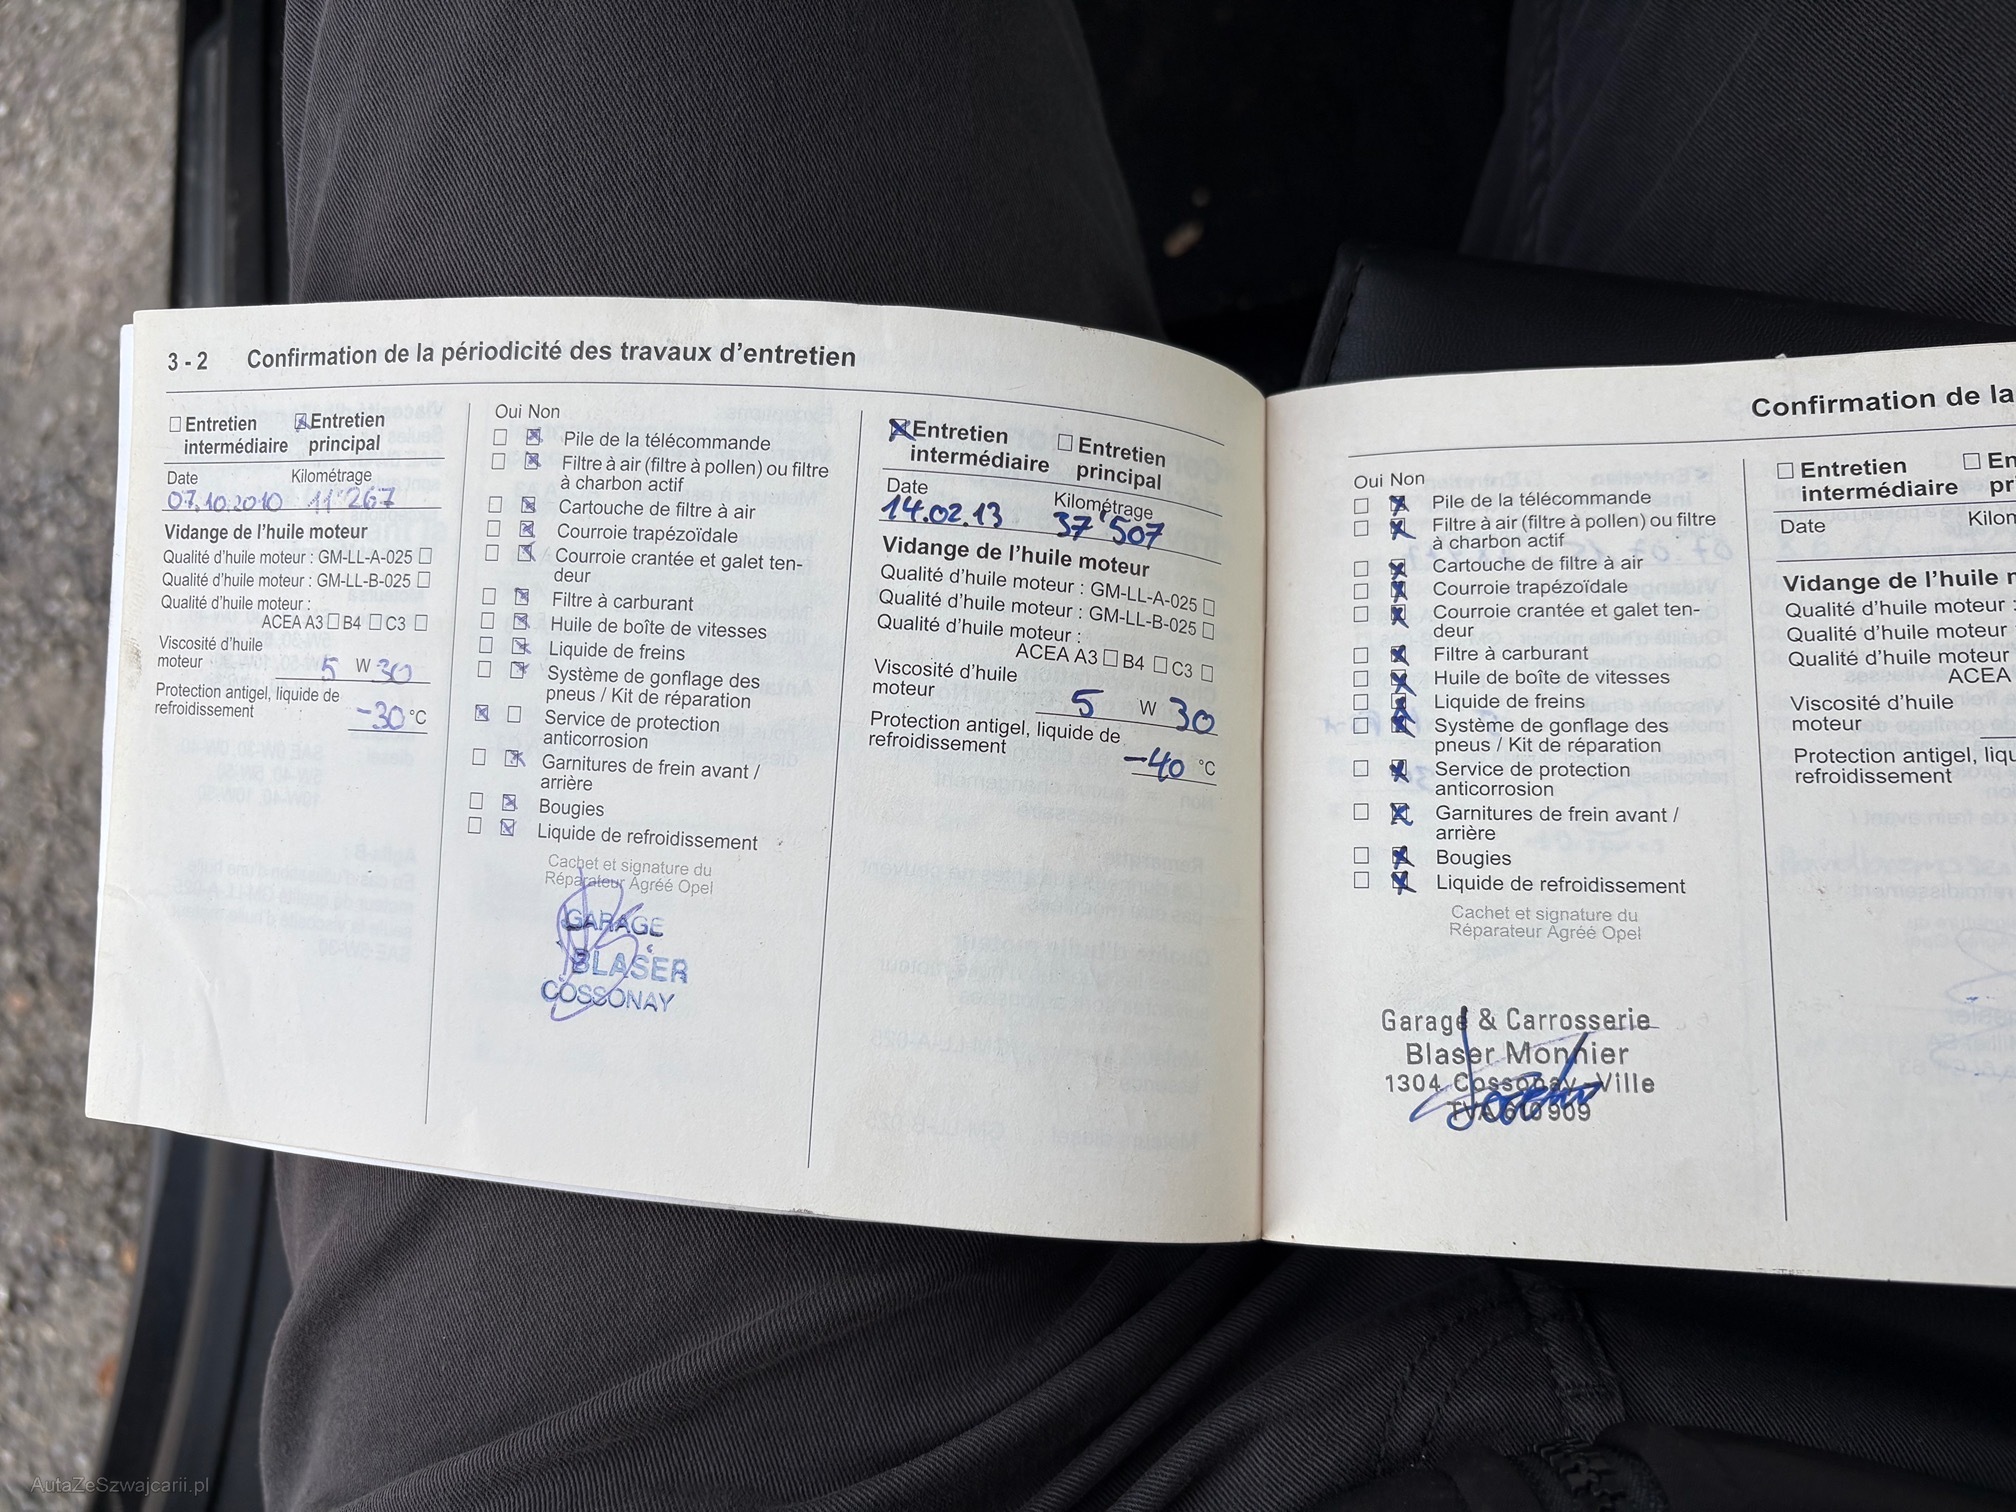 3 - 2 Confirmation de la périodicité des travaux d'entretien
Entretien intermédiaire
Entretien principal
Date Kilométrage
07.10.2010 11'267
Vidange de l'huile moteur
Qualité d'huile moteur : GM-LL-A-025
Qualité d'huile moteur : GM-LL-B-025
Qualité d'huile moteur :
ACEA A3 B4 C3
Viscosité d'huile
moteur 5 W 30
Protection antigel, liquide de
refroidissement -30 °C
Oui Non
Pile de la télécommande
Filtre à air (filtre à pollen) ou filtre
à charbon actif
Cartouche de filtre à air
Courroie trapézoïdale
Courroie crantée et galet ten-
deur
Filtre à carburant
Huile de boîte de vitesses
Liquide de freins
Système de gonflage des
pneus / Kit de réparation
Service de protection
anticorrosion
Garnitures de frein avant /
arrière
Bougies
Liquide de refroidissement
Cachet et signature du
Réparateur Agréé Opel
GARAGE
BLASER
COSSONAY
Entretien intermédiaire
Entretien principal
Date Kilométrage
14.02.13 37'507
Vidange de l'huile moteur
Qualité d'huile moteur : GM-LL-A-025
Qualité d'huile moteur : GM-LL-B-025
Qualité d'huile moteur :
ACEA A3 B4 C3
Viscosité d'huile
moteur 5 W 30
Protection antigel, liquide de
refroidissement -40 °C
Confirmation de la
Oui Non
Pile de la télécommande
Filtre à air (filtre à pollen) ou filtre
à charbon actif
Cartouche de filtre à air
Courroie trapézoïdale
Courroie crantée et galet ten-
deur
Filtre à carburant
Huile de boîte de vitesses
Liquide de freins
Système de gonflage des
pneus / Kit de réparation
Service de protection
anticorrosion
Garnitures de frein avant /
arrière
Bougies
Liquide de refroidissement
Cachet et signature du
Réparateur Agréé Opel
Garage & Carrosserie
Blaser Monnier
1304 Cossonay-Ville
TVA 610 909
Entretien En
intermédiaire pri
Date Kilom
Vidange de l'huile m
Qualité d'huile moteur :
Qualité d'huile moteur
Qualité d'huile moteur
ACEA
Viscosité d'huile
moteur
Protection antigel, liqu
refroidissement
AutaZeSzwajcarii.pl